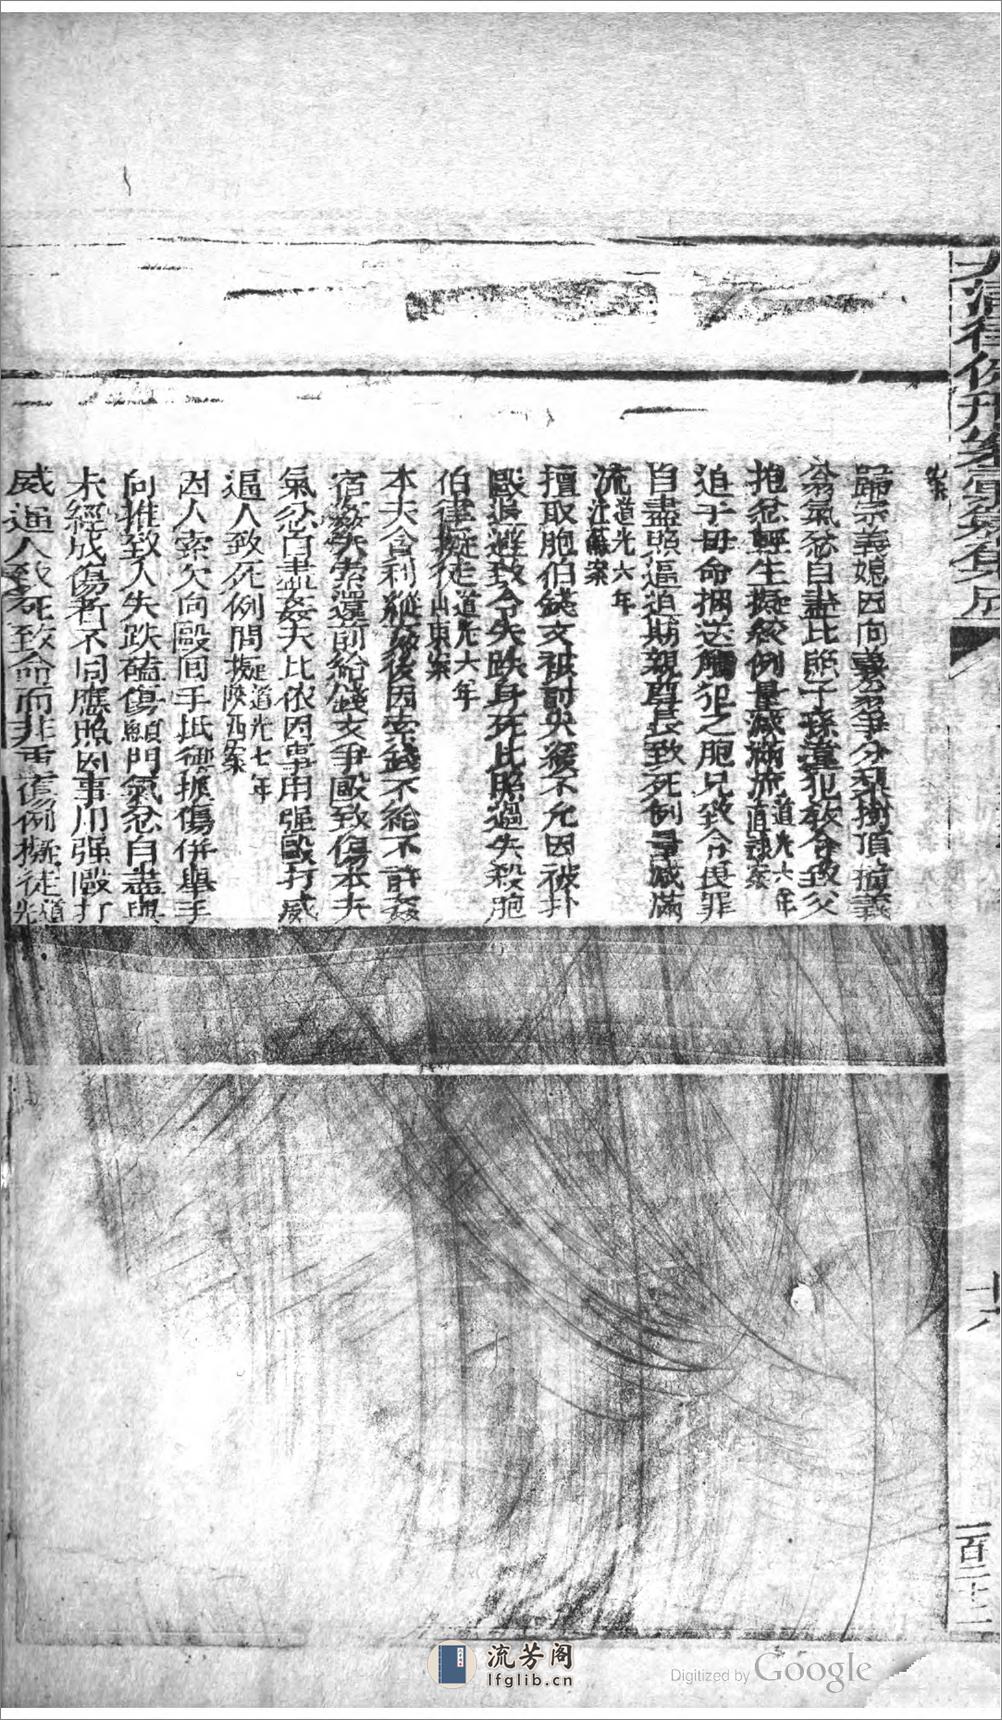 大清律例刑案彙纂集成
歸宗義媳因向義翁爭分梨樹頂撞義
翁氣忿自盡比照子孫違犯教令致父
抱忿輕生擬絞例量減滿流道光六年直隸案
迫于母命捆送觸犯之胞兄致令畏罪
自盡照逼迫期親尊長致死例量減滿
流道光六年江蘇案
擅取胞伯錢文被討央緩不允因被扑
毆退避致令失跌身死比照過失殺胞
伯律擬徒道光六年山東案
本夫含利縱姦後因索錢不給不許姦
宿姦夫索還前給錢文爭毆致傷本夫
氣忿自盡姦夫比依因事用强毆打威
逼人致死例問擬道光七年陝西案
因人索欠向毆回手抵禦抓傷併舉手
向推致人失跌磕傷顖門氣忿自盡與
未經成傷者不同應照因事用强毆打
威逼人致死致命而非重傷例擬徒道光
十八
一百二十二
流芳阁
lfglib.cn
Digitized by Google